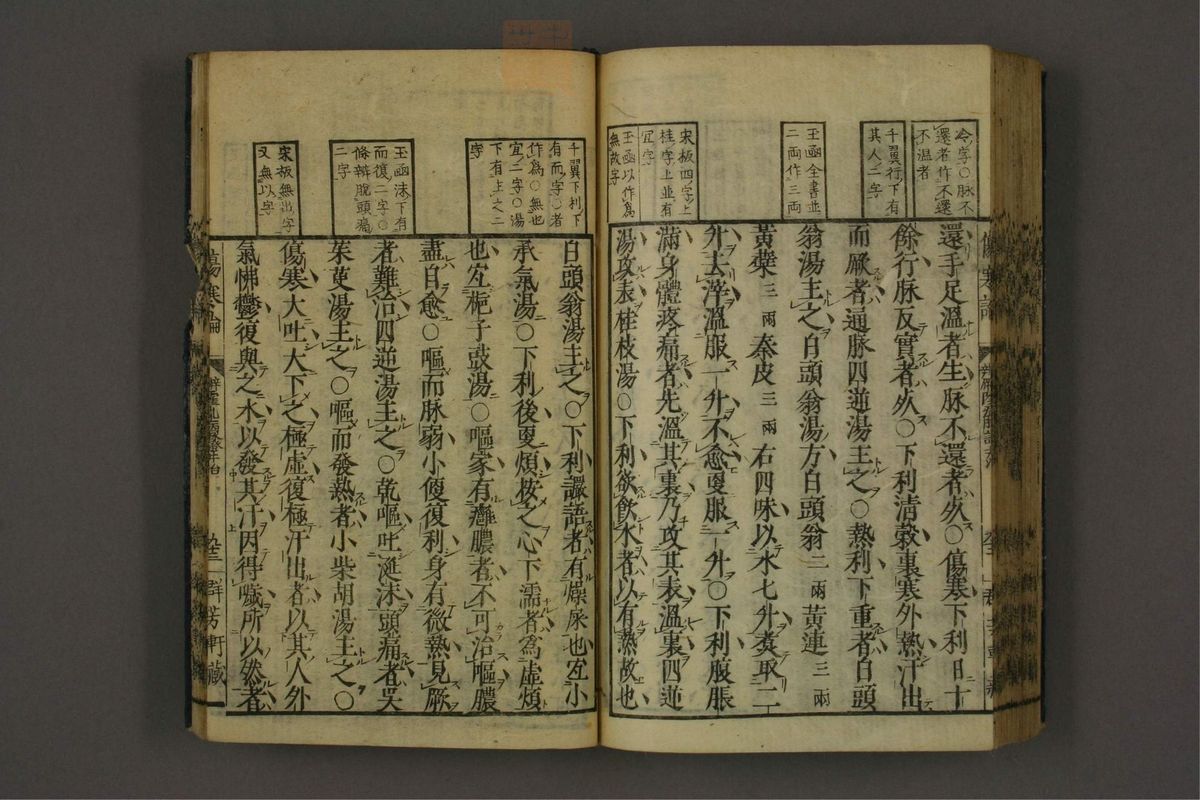 冷字○脉不
還者作不還
不溫者
千翼行下有
其人二字
玉函全書並
二兩作三兩
宋板四字上
桂字上並有
宜字
玉函以作為
無故字
還手足溫者生脉不還者死○傷寒下利日十
餘行脉反實者死○下利清穀裏寒外熱汗出
而厥者通脉四逆湯主之○熱利下重者白頭
翁湯主之白頭翁湯方白頭翁二兩黃連三兩
黃蘗三兩秦皮三兩右四味以水七升煑取二
升去滓溫服一升不愈更服一升○下利腹脹
滿身體疼痛者先溫其裏乃攻其表溫裏四逆
湯攻表桂枝湯○下利欲飲水者以有熱故也
千翼下利下
有而字○者
作為○無也
宜二字○湯
下有主之二
字
玉函沫下有
而復二字○
條辨脫頭痛
二字
宋板無出字
又無以字
白頭翁湯主之○下利讝語者有燥屎也宜小
承氣湯○下利後更煩按之心下濡者為虛煩
也宜梔子豉湯○嘔家有癰膿者不可治嘔膿
盡自愈○嘔而脉弱小便復利身有微熱見厥
者難治四逆湯主之○乾嘔吐涎沫頭痛者吳
茱萸湯主之○嘔而發熱者小柴胡湯主之○
傷寒大吐大下之極虛復極汗出者以其人外
氣怫鬱復與之水以發其汗因得噦所以然者
傷寒論
群芳軒藏